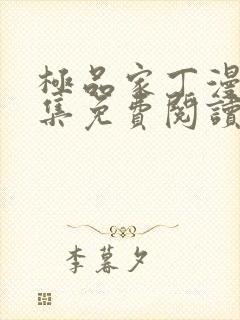 極品家丁漫
集免費閱讀
李暮夕